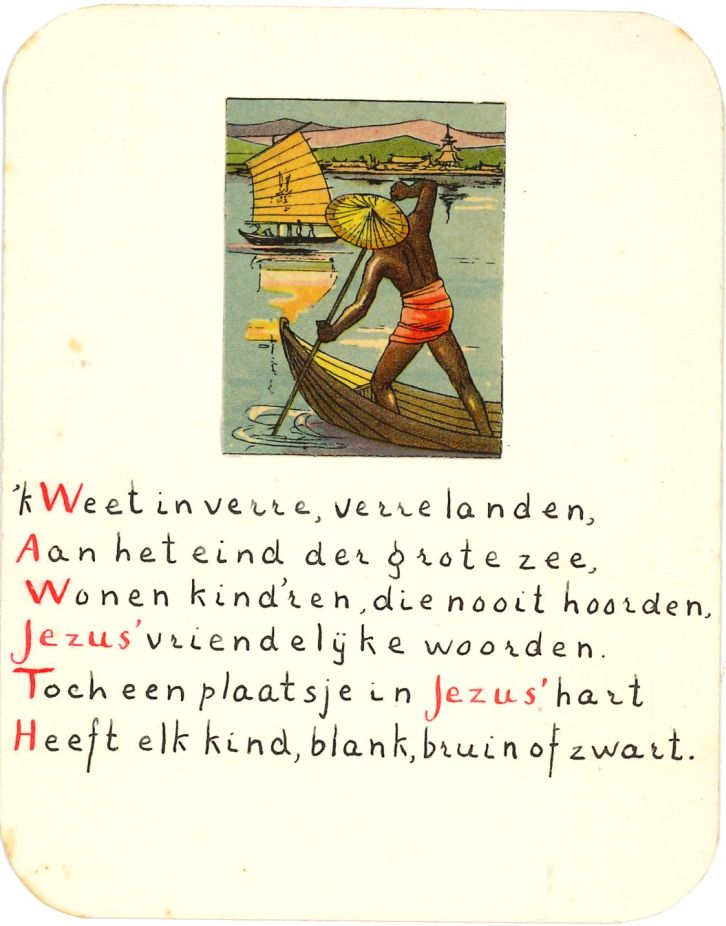 'k Weet in verre, verre landen,
Aan het eind der grote zee,
Wonen kind'ren, die nooit hoorden,
Jezus' vriendelijke woorden.
Toch een plaatsje in Jezus' hart
Heeft elk kind, blank, bruin of zwart.